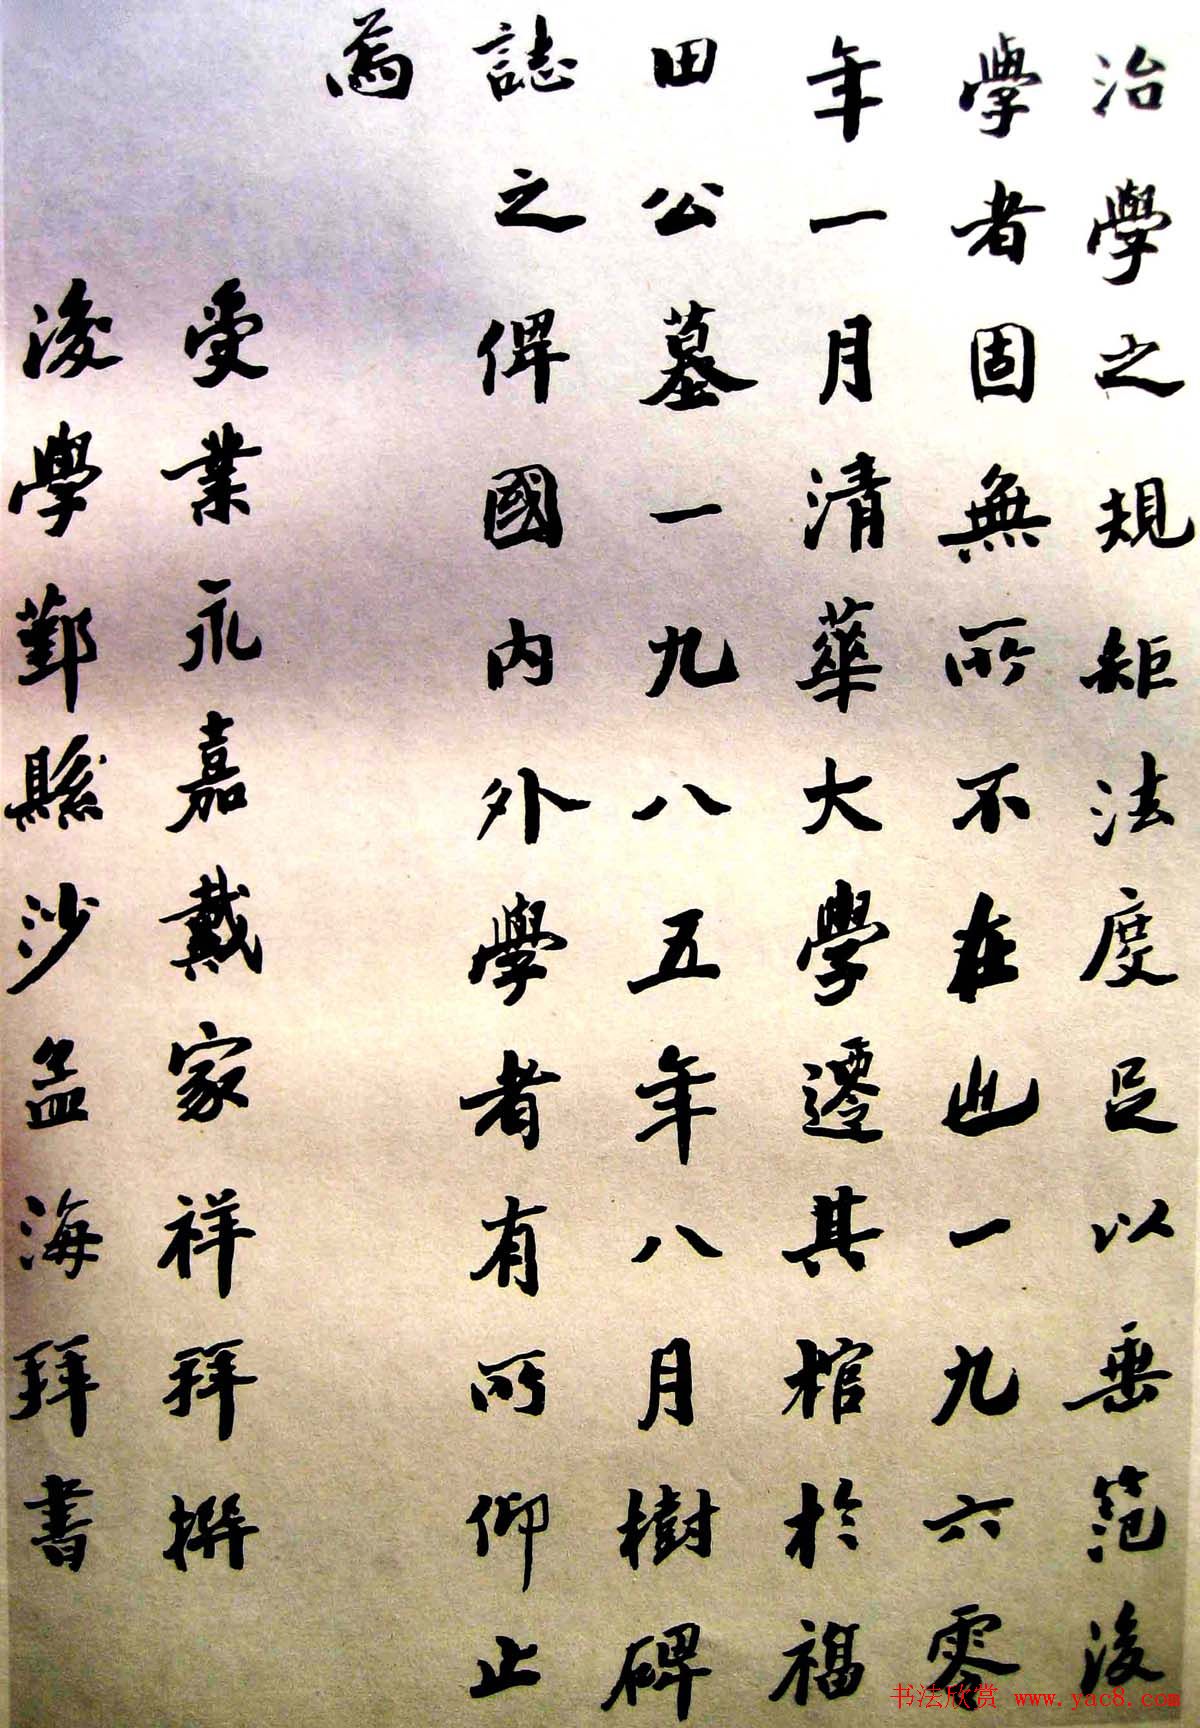 治學之規矩法度足以垂范後
學者固無所不在也一九六零
年一月清華大學遷其棺於福
田公墓一九八五年八月樹碑
誌之俾國內外學者有所仰止
焉
受業永嘉戴家祥拜撰
後學鄞縣沙孟海拜書
书法欣赏 www.yac8.com